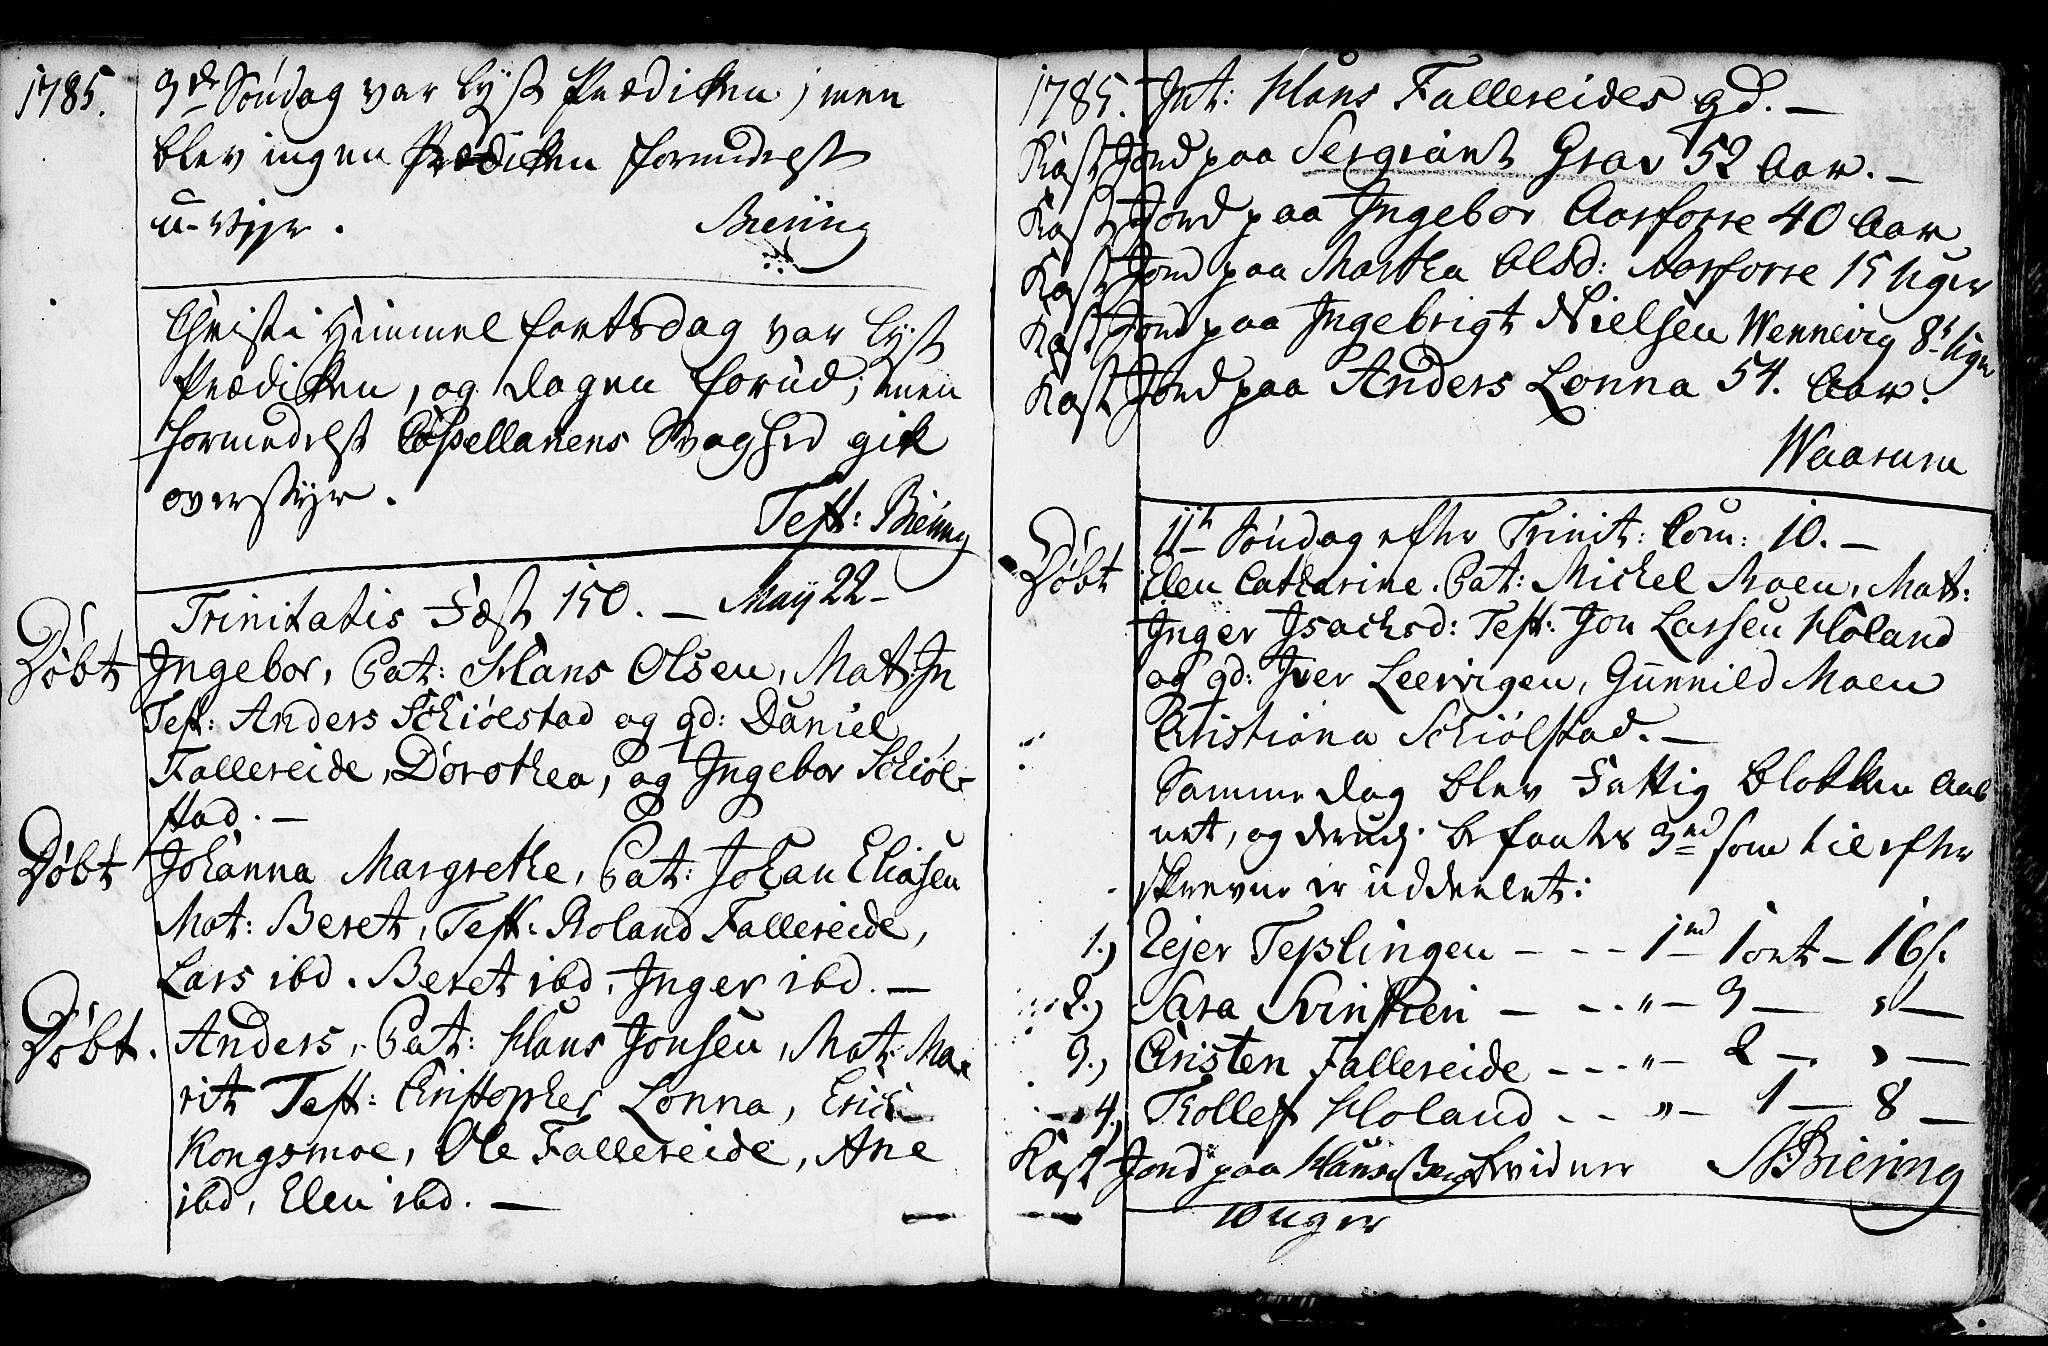 1785.
3de Söndag var lyst Prædiken; men
blev ingen Prædiken formedelst
u-vejr.
Biering
Christi Himmelfartsdag var lyst
Prædiken, og dagen forud; men
formedelst Capellanens Svaghed gik
overstyr.
Test: Biering
Trinitatis Fæst 150. — Maÿ 22 –
Døbt Ingebor, Pat: Hans Olsen, Mat: In
Test: Anders Schiölstad og gd: Daniel
Fallereide, Dorothea, og Ingebor Schiöl-
stad. —
Døbt Johanna Margrethe, Pat: Johan Eliasen
Mat: Beret, Test: Roland Fallereide,
Lars ibd. Beret ibd, Inger ibd. —
Døbt. Anders, Pat: Hans Jonsen, Mat: Ma-
rit Test: Cristopher Lonna, Erich
Kongsmoe, Ole Fallereide, Ane
ibd, Elen ibd. —
1785. Int: Hans Fallereides gd. —
Kast Jord paa Sergiant Grav 52 Aar. —
Kast Jord paa Ingebor Aarforse 40 Aar
Kast Jord paa Martha Olsd: Aarforse 15 Uger
Kast Jord paa Ingebrigt Nielsen Wennevig 8t Uger
Kast Jord paa Anders Lonna 54. Aar.
Waarum
11te Söndag efter Trinit: Com: 10. —
Døbt Elen Catharine. Pat: Michel Moen, Mat:
Inger Isachsd: Test: Jon Larsen Holand
og gd: Iver Leervigen, Gunnild Moen
Cristiana Schiölstad. —
Samme dag blev Fattig Blokken Aab
net, og derudj befantes 3rd som til efter
skrevne er uddeelet:
1.) Zejer Teplingen - - - 1rd 1 ort – 16 s.
2.) Sara Svinskei — - - " — 3 — " —
3.) Cristen Fallereide - - - " – 2 — " —
4.) Thollef Holand - - " — 1 — 8 —
Kast Jord paa Hans Qvidner Biering
10 uger